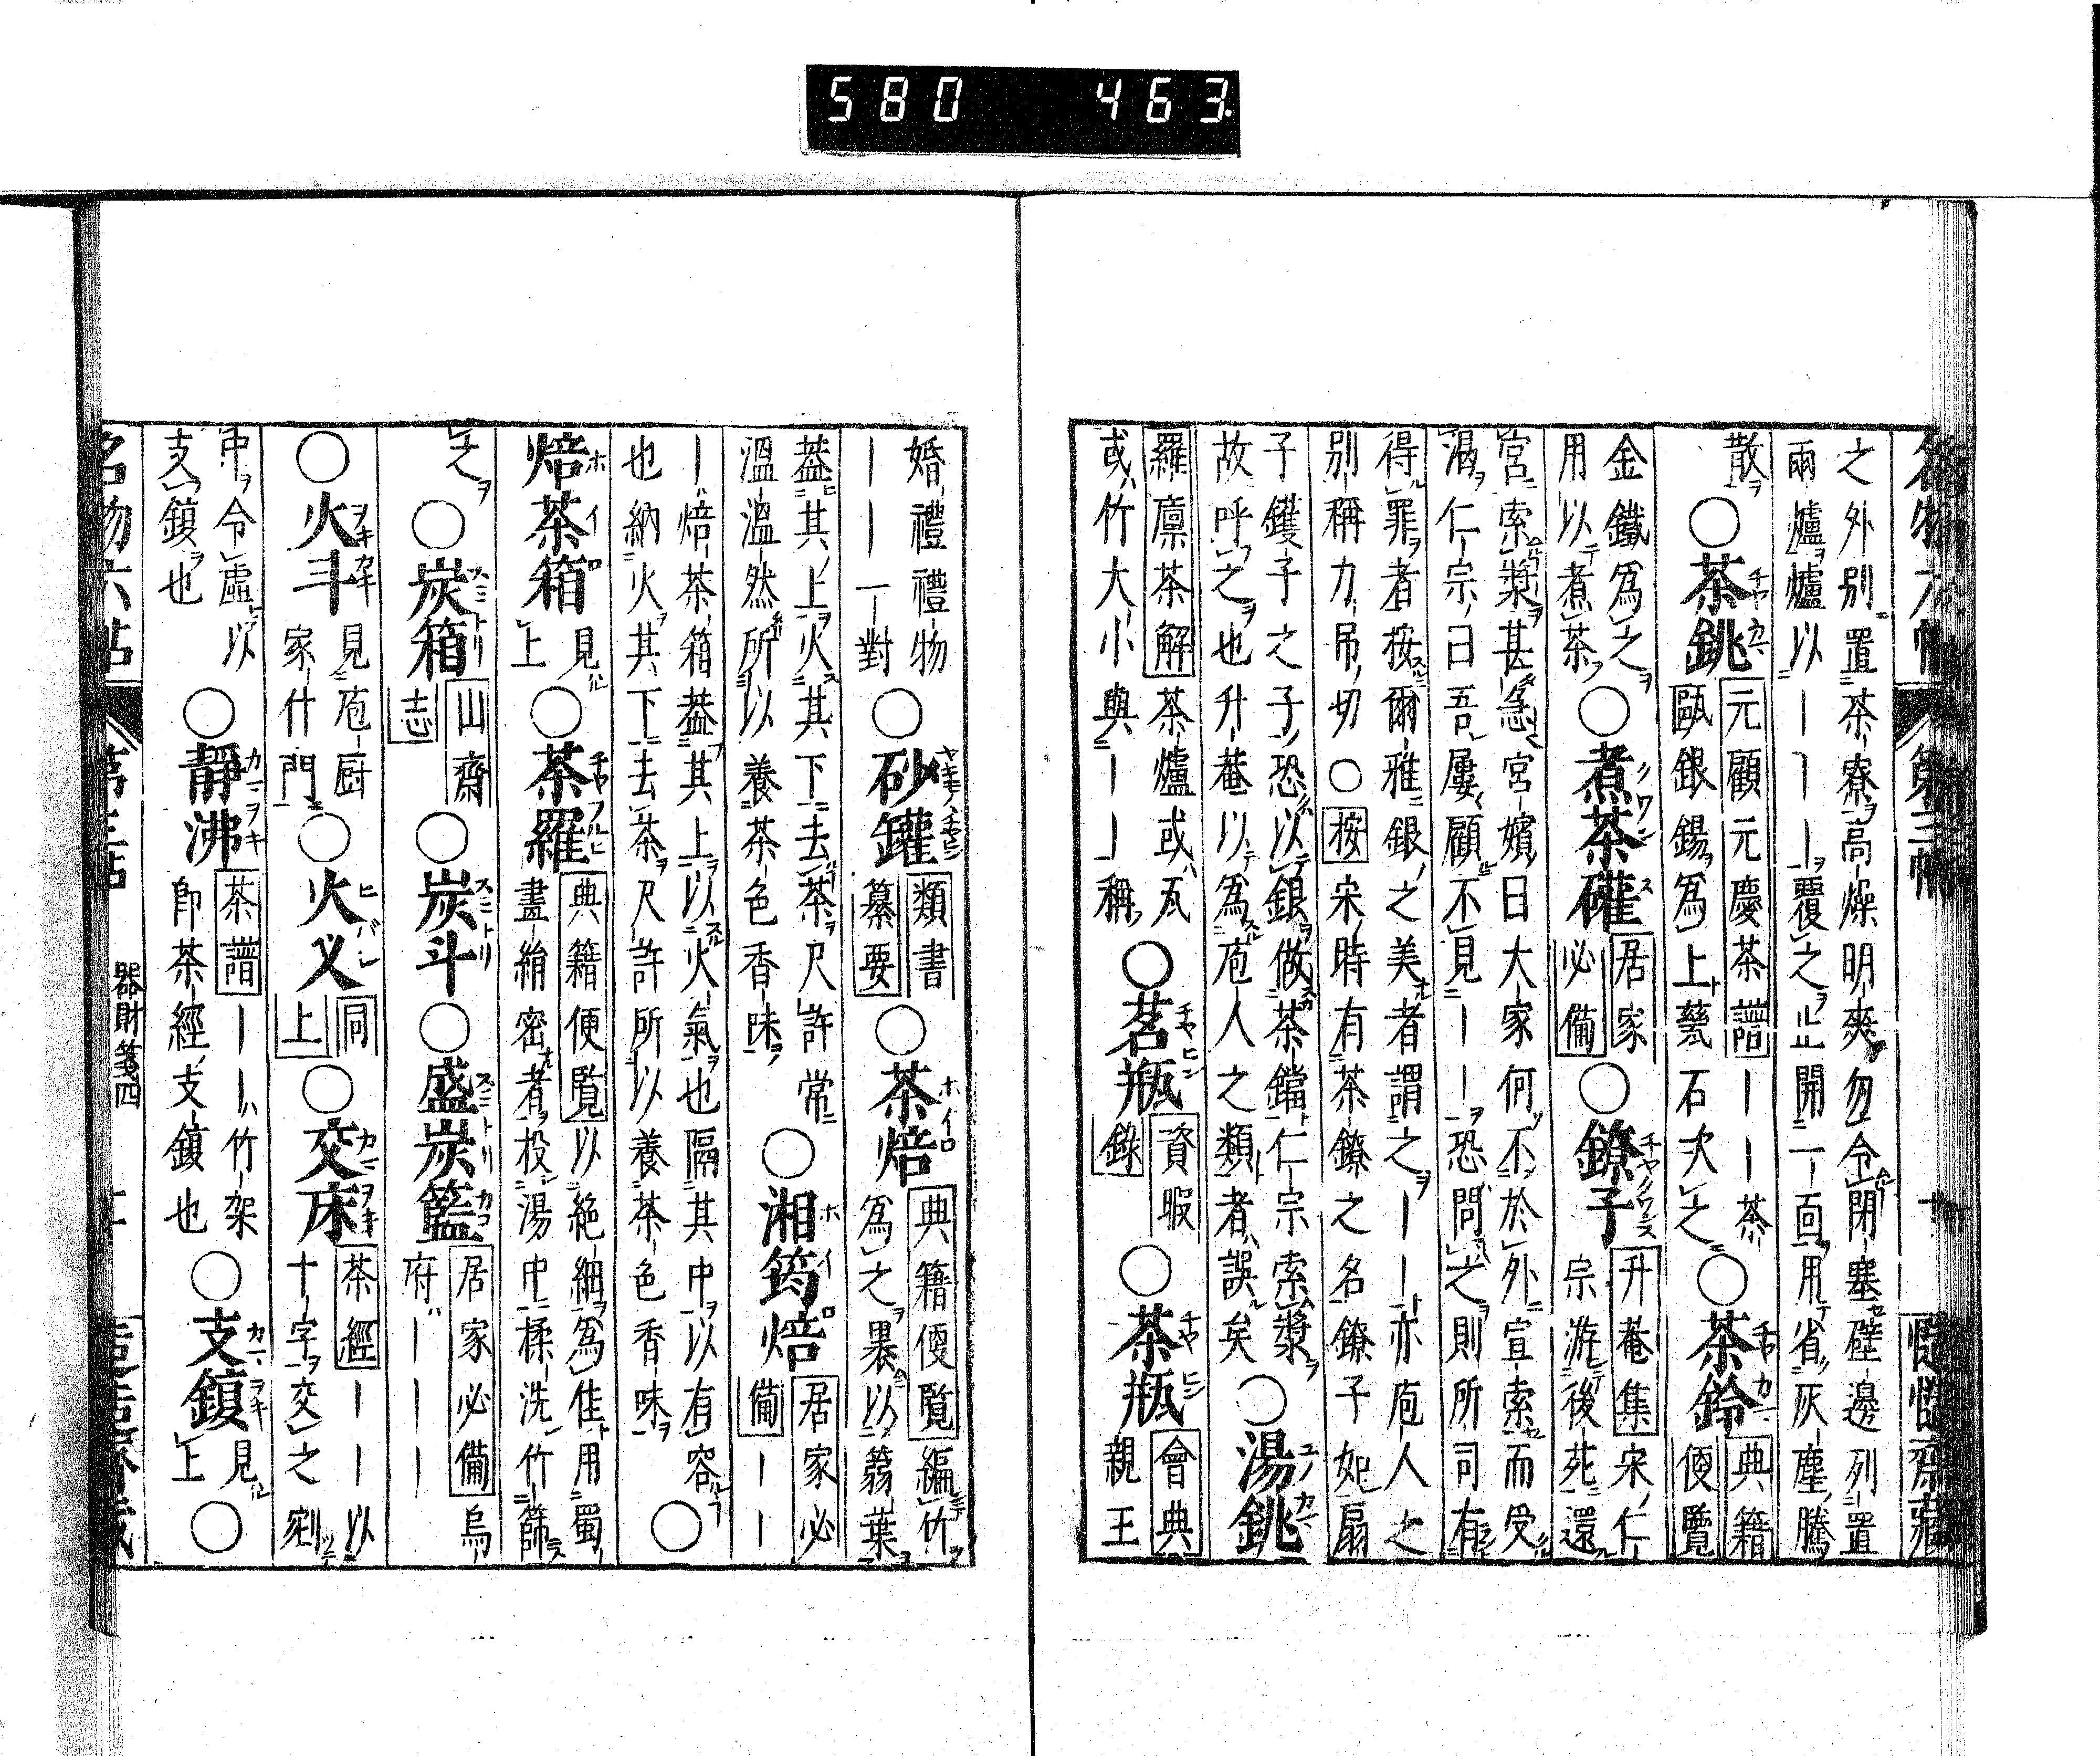 580 463
名物六帖 第三帖 十 慥慥齋藏
之外別置茶寮高燥明爽勿令閉塞壁邊列置
兩爐爐以丨丨丨覆之止開一面用省灰塵騰
散
○茶銚 元顧元慶茶譜 丨丨茶
甌銀錫爲上甆石次之
○茶鈴 典籍便覽
金鐵爲之
用以煮茶
○煮茶礶 居家必備
○鐐子 升菴集 宋仁
宗游後苑還
宮索漿甚急宮嬪曰大家何不於外宣索而受
渴仁宗曰吾屢顧不見丨丨恐問之則所司有
得罪者按爾雅銀之美者謂之丨丨亦庖人之
別稱力吊切○按宋時有茶鐐之名鐐子如扇
子鑊子之子恐以銀做茶鐺仁宗索漿
故呼之也升菴以爲庖人之類者誤矣
○湯銚
羅廩茶解 茶爐或瓦
或竹大小與丨丨稱
○茗瓶 資暇錄
○茶瓶 會典 親王
婚禮禮物
丨丨一對
○砂罐 類書纂要
○茶焙 典籍便覽 編竹
爲之裹以蒻葉
蓋其上火其下去茶尺許常
溫溫然所以養茶色香味
○湘筠焙 居家必備 丨丨
丨焙茶箱蓋其上以火氣也隔其中以有容
也納火其下去茶尺許所以養茶色香味
○
焙茶箱 見上
○茶羅 典籍便覽 以絶細爲佳用蜀
畫絹密者投湯中揉洗竹篩
之
○炭箱 山齋志
○炭斗
○盛炭籃 居家必備 烏
府丨丨丨
○火斗 見庖厨
家什門
○火义 同上
○交床 茶經 丨丨以
十字交之剜
中令虛以
支鍑也
○靜沸 茶譜 丨丨竹架
卽茶經支鍑也
○支鍑 見上
○
名物六帖 第三帖 器財箋四